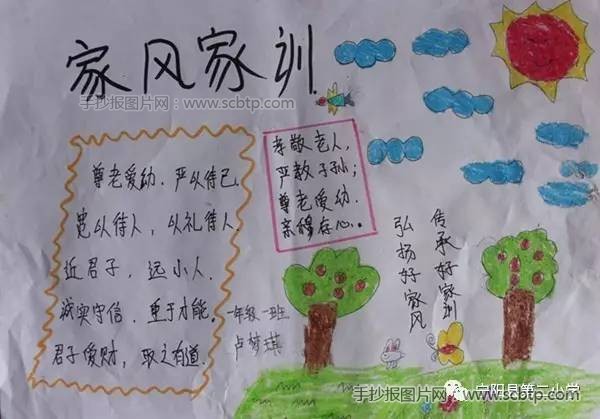 家风家训
手抄报图片网:www.scbtp.com
尊老爱幼.严以待己,
宽以待人,以礼待人
近君子,远小人.
诚实守信.重于才能,
君子爱财,取之有道.
孝敬老人,
严教子孙;
尊老爱幼.
亲穆存心。
传承好家训
弘扬好家风
一年级一班
卢梦琪
手抄报图片网:www.scbtp.com
宁阳县第二小学